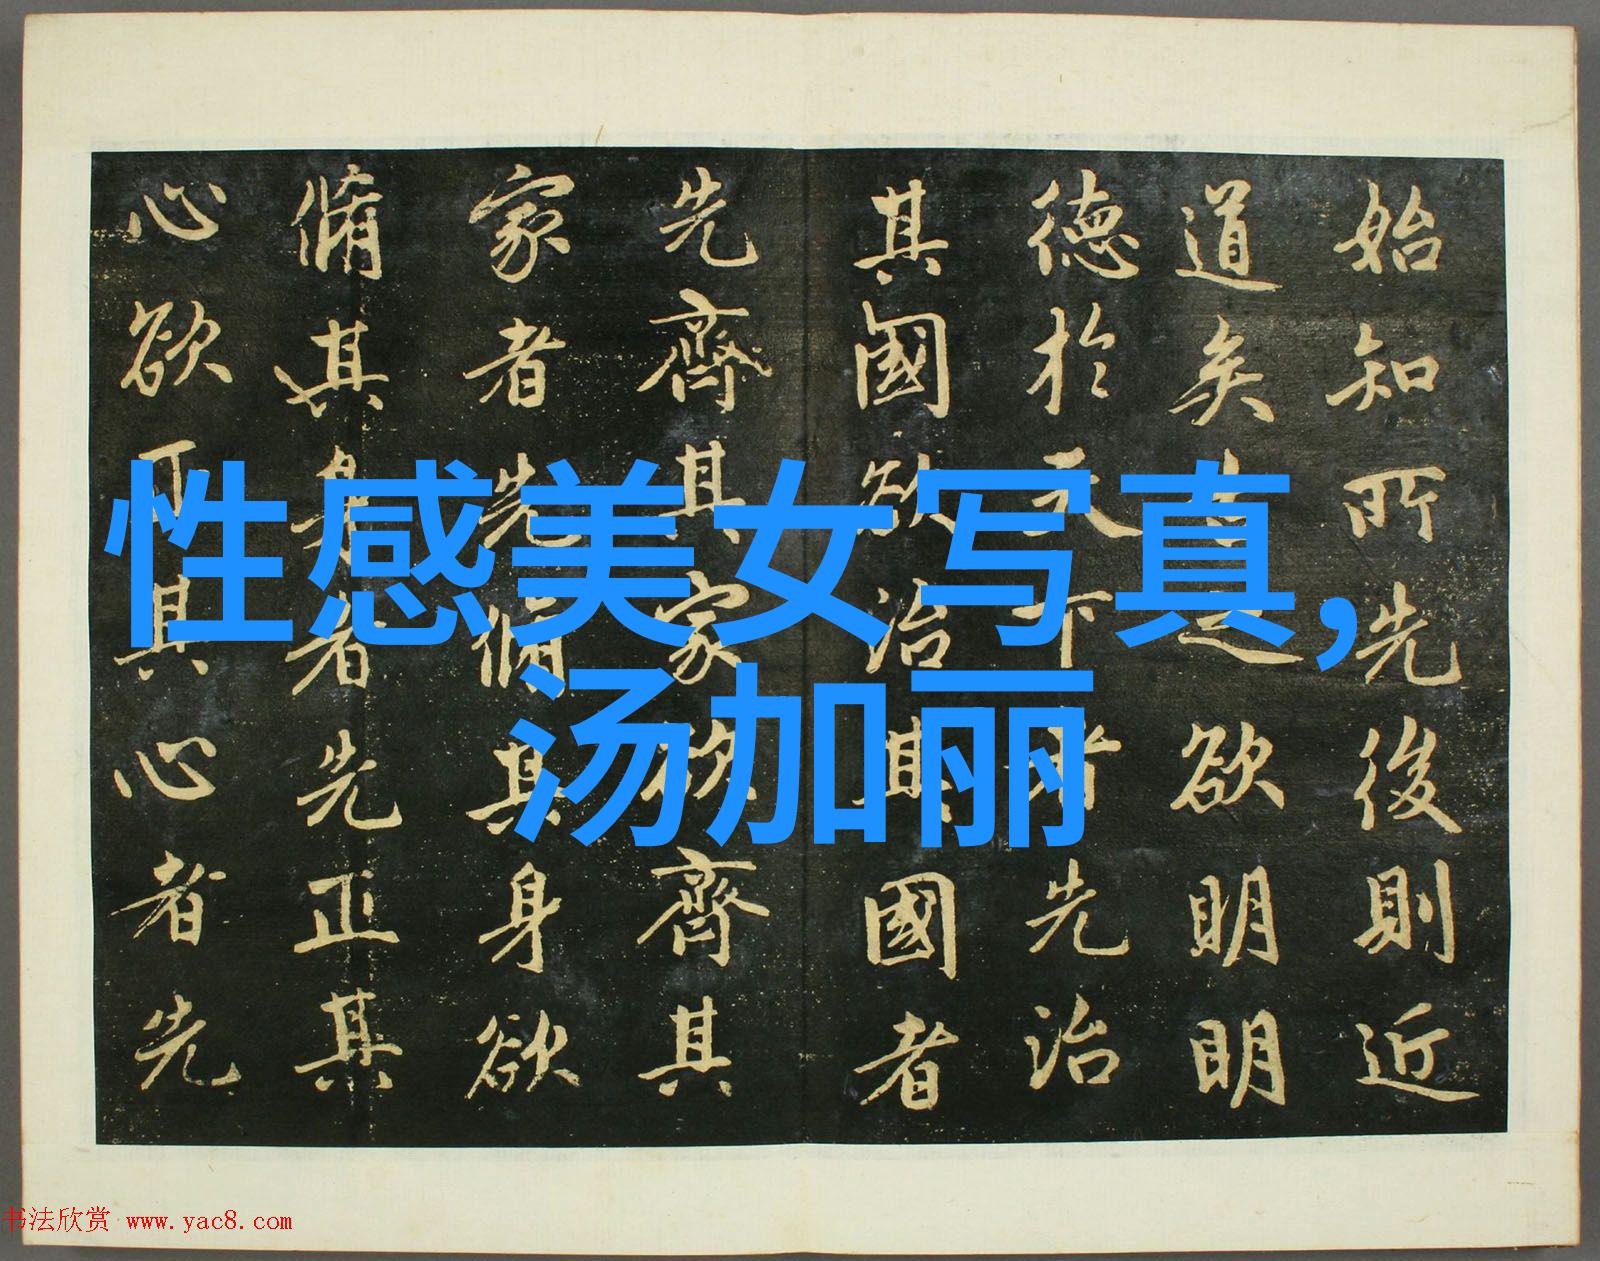 始知所先後則近
道矣古之欲明明
德於天下者先治
其國欲治其國者
先齊其家欲齊其
家者先脩其身欲
脩其身者先正其
心欲正其心者先
性感美女写真,
汤加丽
书法欣赏 www.yac8.com